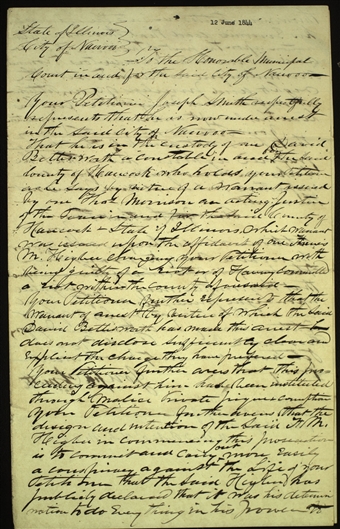 12 June 1844
State of Illinois
City of Nauvoo
To the Honorable Municipal
Court in and for the said City of Nauvoo
Your Petitioner Joseph Smith respectfully
represents that he is now under arrest
in the said City of Nauvoo
That he is in the custody of one David
Bettersworth a Constable in and for the said
County of Hancock who holds your petitioner
as he says by virtue of a warrant issued
by one Morrison an acting Justice
of the County of
Hancock & State of Illinois, which warrant
was issued upon the affidavit of one Francis
M. Higbee charging your Petitioner with
being guilty of a Riot or of having committed
a riot within the County aforesaid
Your Petitioner further represents that the
warrant of arrest by virtue of which the said
David Bettersworth has made the arrest
does not disclose sufficiently clear and
explicit the charge they have preferred
Your Petitioner further avers that this pro
ceeding against him has been instituted
through malice private pique & corruption
Your Petitioner further avers that the
design and intention of the said F. M.
Higbee in commencing this prosecution
is to commit and carry out more easily
a conspiracy against the life of your
Petitioner that the said Higbee has
publicly declared that it was his determi
nation to do everything in his power